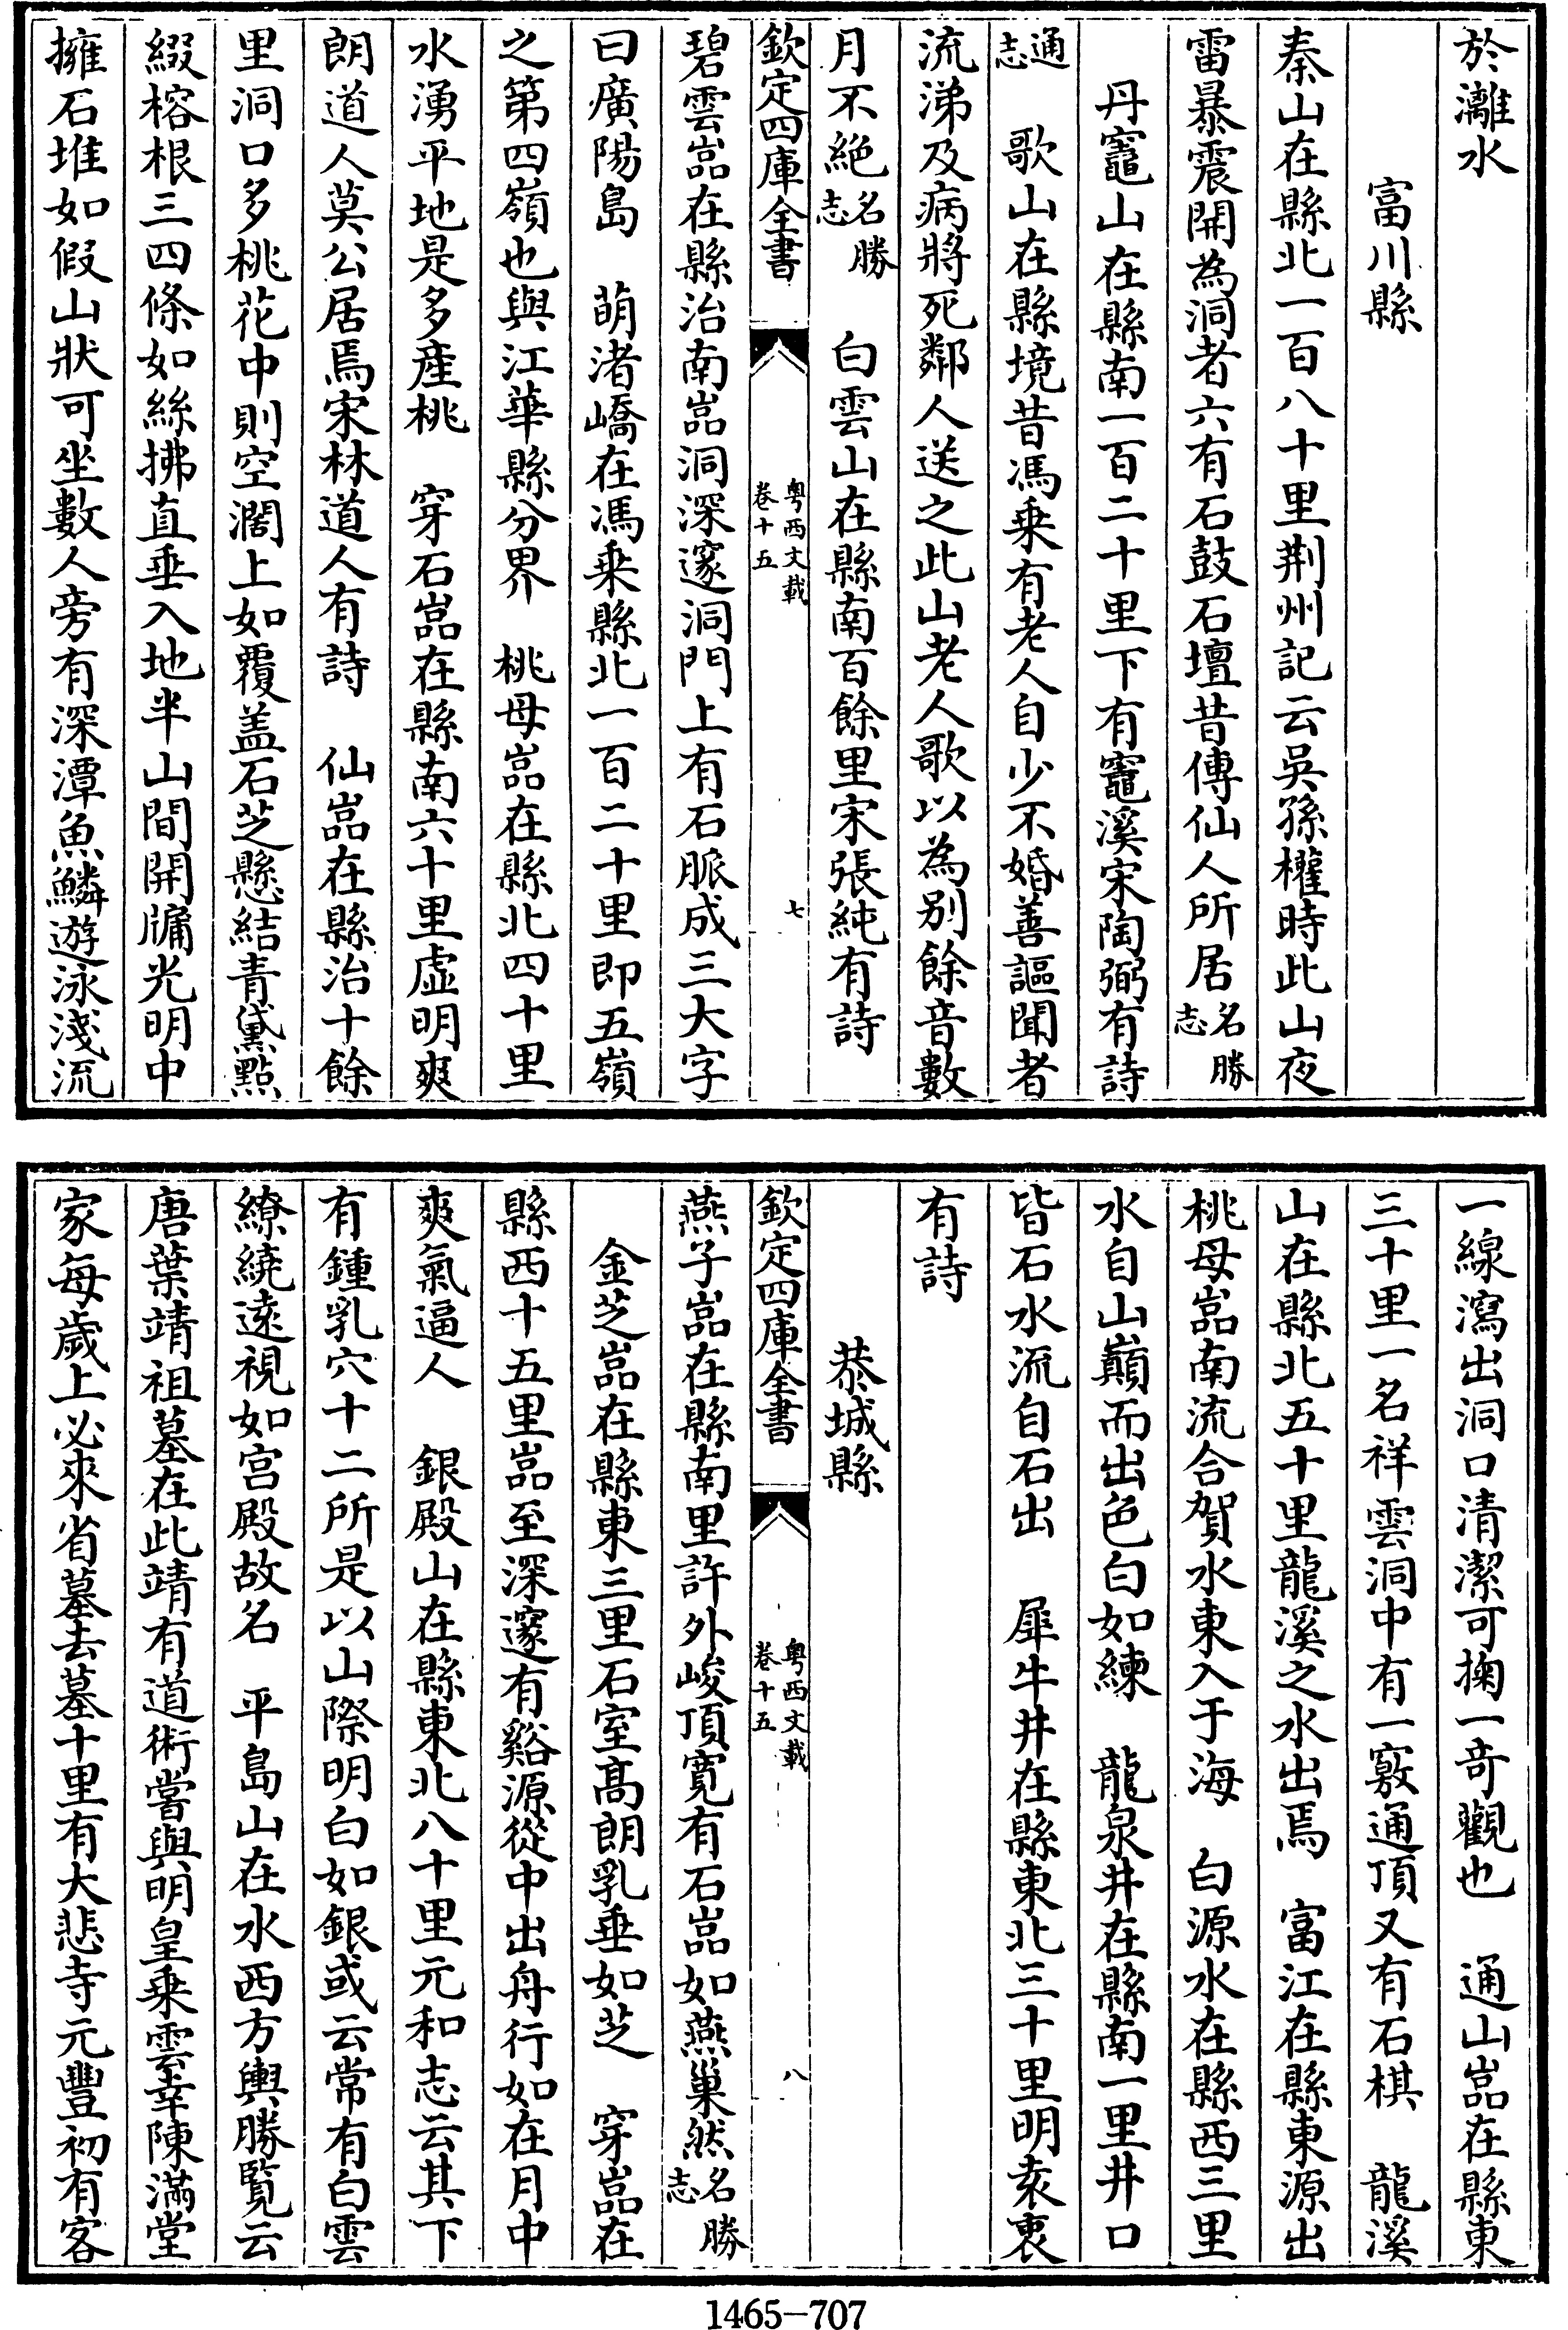 於灕水
富川縣
秦山在縣北一百八十里荆州記云吳孫權時此山夜
雷暴震開為洞者六有石鼓石壇昔傳仙人所居名勝志
丹竈山在縣南一百二十里下有竈溪宋陶弼有詩
歌山在縣境昔馮乗有老人自少不婚善謳聞者
通志
流涕及病將死鄰人送之此山老人歌以為别餘音數
月不絶名勝志　白雲山在縣南百餘里宋張純有詩
欽定四庫全書　粤西文載卷十五　七
碧雲嵓在縣治南嵓洞深邃洞門上有石脈成三大字
曰廣陽島　萌渚嶠在馮乗縣北一百二十里即五嶺
之第四嶺也與江華縣分界　桃母嵓在縣北四十里
水湧平地是多產桃　穿石嵓在縣南六十里虛明爽
朗道人莫公居焉宋林道人有詩　仙嵓在縣治十餘
里洞口多桃花中則空濶上如覆盖石芝懸結青黛㸃
綴榕根三四條如絲拂直垂入地半山間開牖光明中
擁石堆如假山狀可坐數人旁有深潭魚鱗遊泳淺流
一線瀉出洞口清潔可掬一奇觀也　通山嵓在縣東
三十里一名祥雲洞中有一竅通頂又有石棋　龍溪
山在縣北五十里龍溪之水出焉　富江在縣東源出
桃母嵓南流合賀水東入于海　白源水在縣西三里
水自山巔而出色白如練　龍泉井在縣南一里井口
皆石水流自石出　犀牛井在縣東北三十里明袁衷
有詩
恭城縣
欽定四庫全書　粤西文載卷十五　八
燕子嵓在縣南里許外峻頂寛有石嵓如燕巢然名勝志
金芝嵓在縣東三里石室髙朗乳垂如芝　穿嵓在
縣西十五里嵓至深邃有谿源從中出舟行如在月中
爽氣逼人　銀殿山在縣東北八十里元和志云其下
有鍾乳穴十二所是以山際明白如銀或云常有白雲
繚繞逺視如宫殿故名　平島山在水西方輿勝覧云
唐葉靖祖墓在此靖有道術嘗與明皇乗雲幸陳滿堂
家每歲上必來省墓去墓十里有大悲寺元豐初有客
1465—707